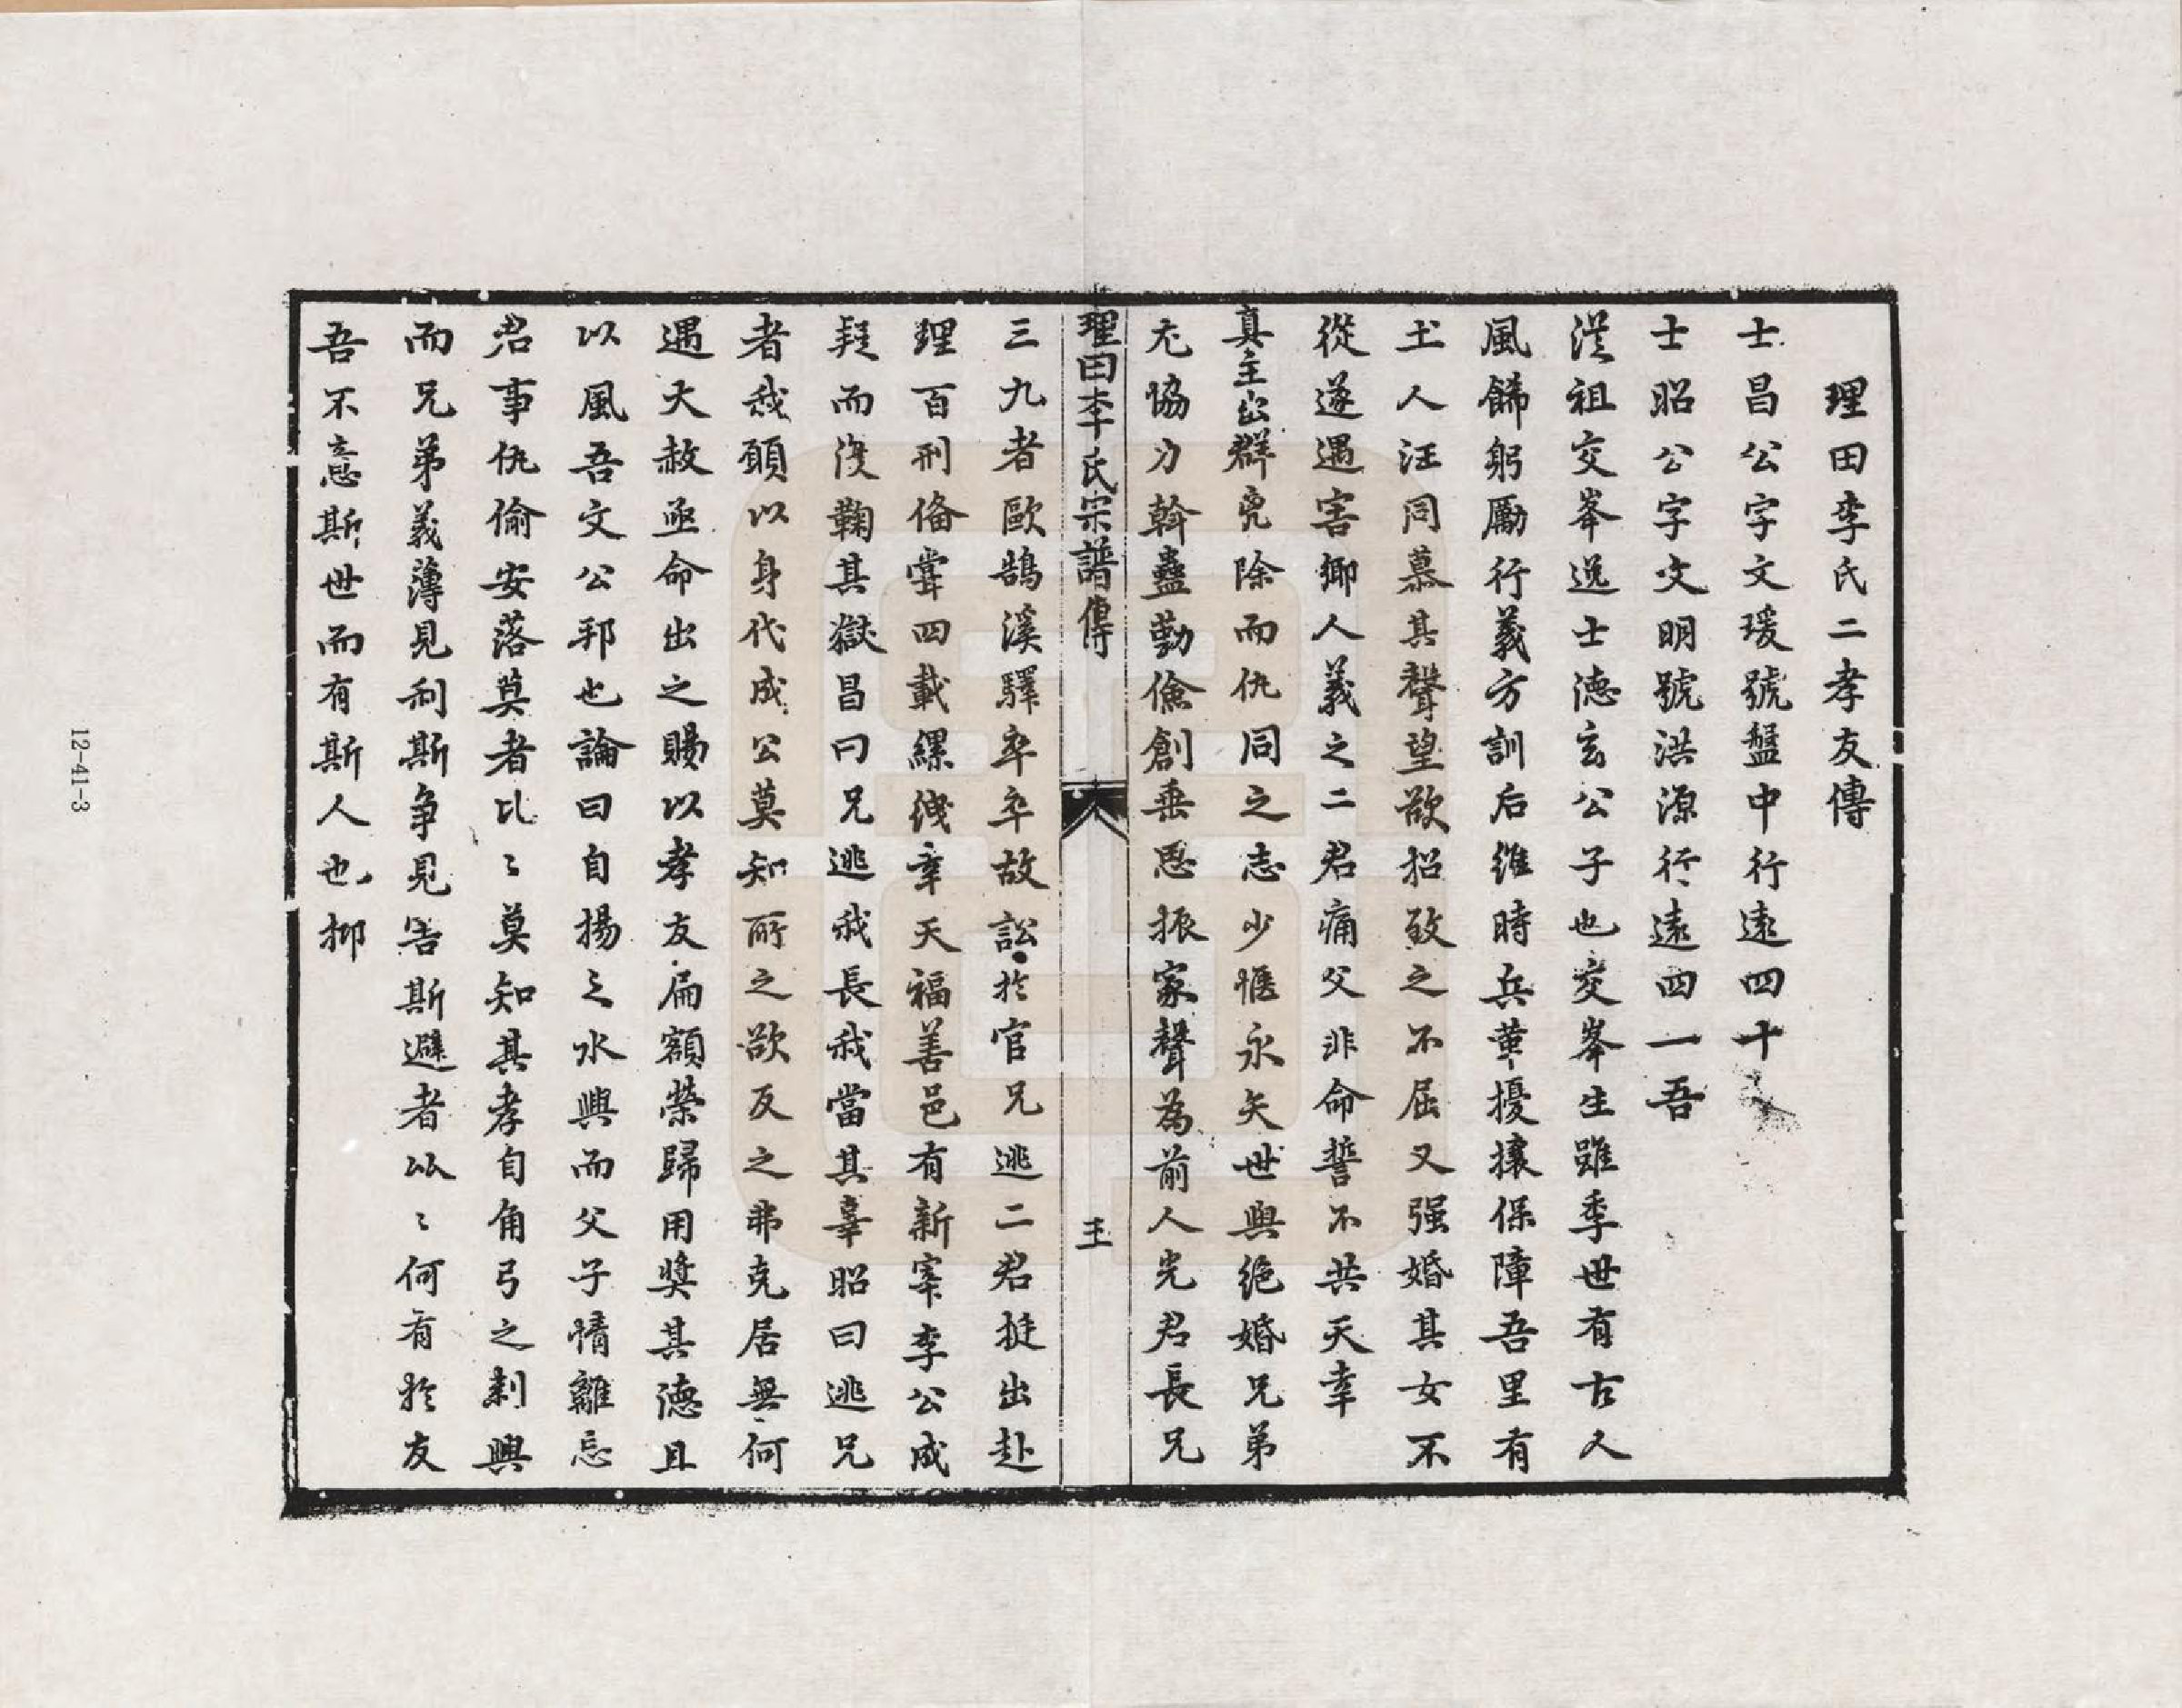 理田李氏二孝友傳
士昌公字文瑗號盤中行遠四十
士昭公字文明號洪源行遠四一吾
從祖交峯逸士德玄公子也交峯生雖季世有古人
風飾躬勵行義方訓后維時兵黃擾攘保障吾里有
土人汪同慕其聲望欲招致之不屈又强婚其女不
從遂遇害鄉人義之二君痛父非命誓不共天幸
真主出群兇除而仇同之志少愜永矢世與絶婚兄弟
尤協力幹蠱勤儉創垂思振家聲為前人光君長兄
理田李氏宗譜傳
三九者歐鵠溪驛卒卒故訟於官兄逃二君挺出赴
理百刑俻甞四載縲绁幸天福善邑有新宰李公成
疑而沒鞠其獄昌曰兄逃我長我當其辜昭曰逃兄
者我願以身代成公莫知所之欲反之弗克居無何
遇大赦亟命出之賜以孝友扁額榮歸用奬其德且
以風吾文公邦也論曰自揚之水興而父子情離忘
君事仇偷安落莫者比〻莫知其孝自角弓之刺興
而兄弟義薄見利斯争見害斯避者从〻何有於友
吾不意斯世而有斯人也抑
12-41-3